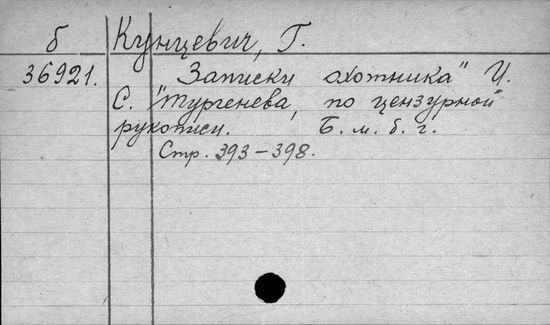 б Кунцевич, Г.
36921. Записки охотника" И.
С. "Тургенева, по цензурной"
рукописи. Б. м. б. г.
Стр. 393-398.